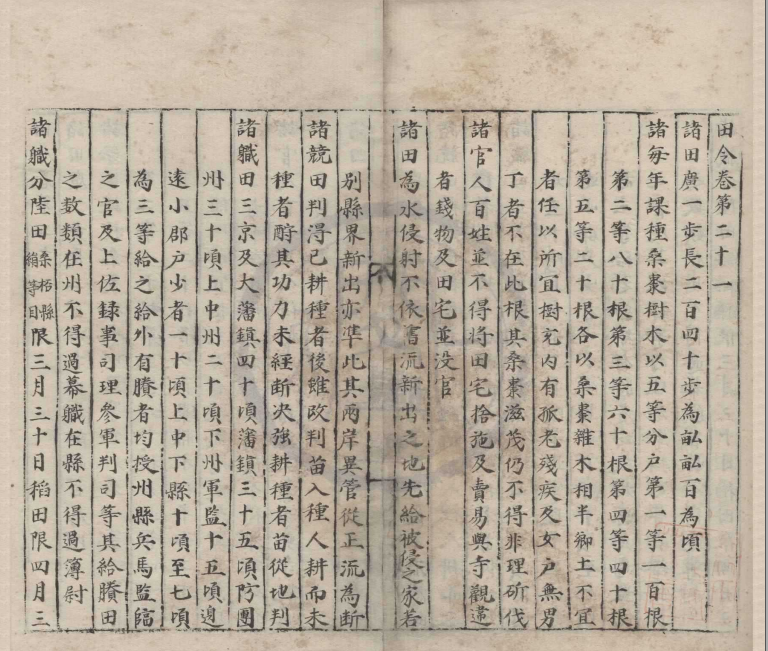 田令卷第二十一
諸田廣一步長二百四十步為畝畝百為頃
諸每年課種桑棗樹木以五等分戶第一等一百根
第二等八十根第三等六十根第四等四十根
第五等二十根各以桑棗雜木相半鄉土不宜
者任以所宜樹充內有孤老殘疾及女戶無男
丁者不在此根其桑棗滋茂仍不得非理斫伐
諸官人百姓並不得將田宅捨施及賣易與寺觀違
者錢物及田宅並没官
諸田為水侵射不依舊流新出之地先給被侵之家若
別縣界新出亦準此其兩岸異管從正流為斷
諸競田判得已耕種者後雖改判苗入種人耕而未
種者酧其功力未經斷决強耕種者苗從地判
諸職田三京及大藩鎮四十頃藩鎮三十五頃防團
州三十頃上中州二十頃下州軍監十五頃邊
遠小郡戶少者一十頃上中下縣十頃至七頃
為三等給之給外有賸者均授州縣兵馬監臨
之官及上佐録事司理參軍判司等其給賸田
之数類在州不得過幕職在縣不得過簿尉
諸職分陸田桑柘縣絹等目限三月三十日稻田限四月三